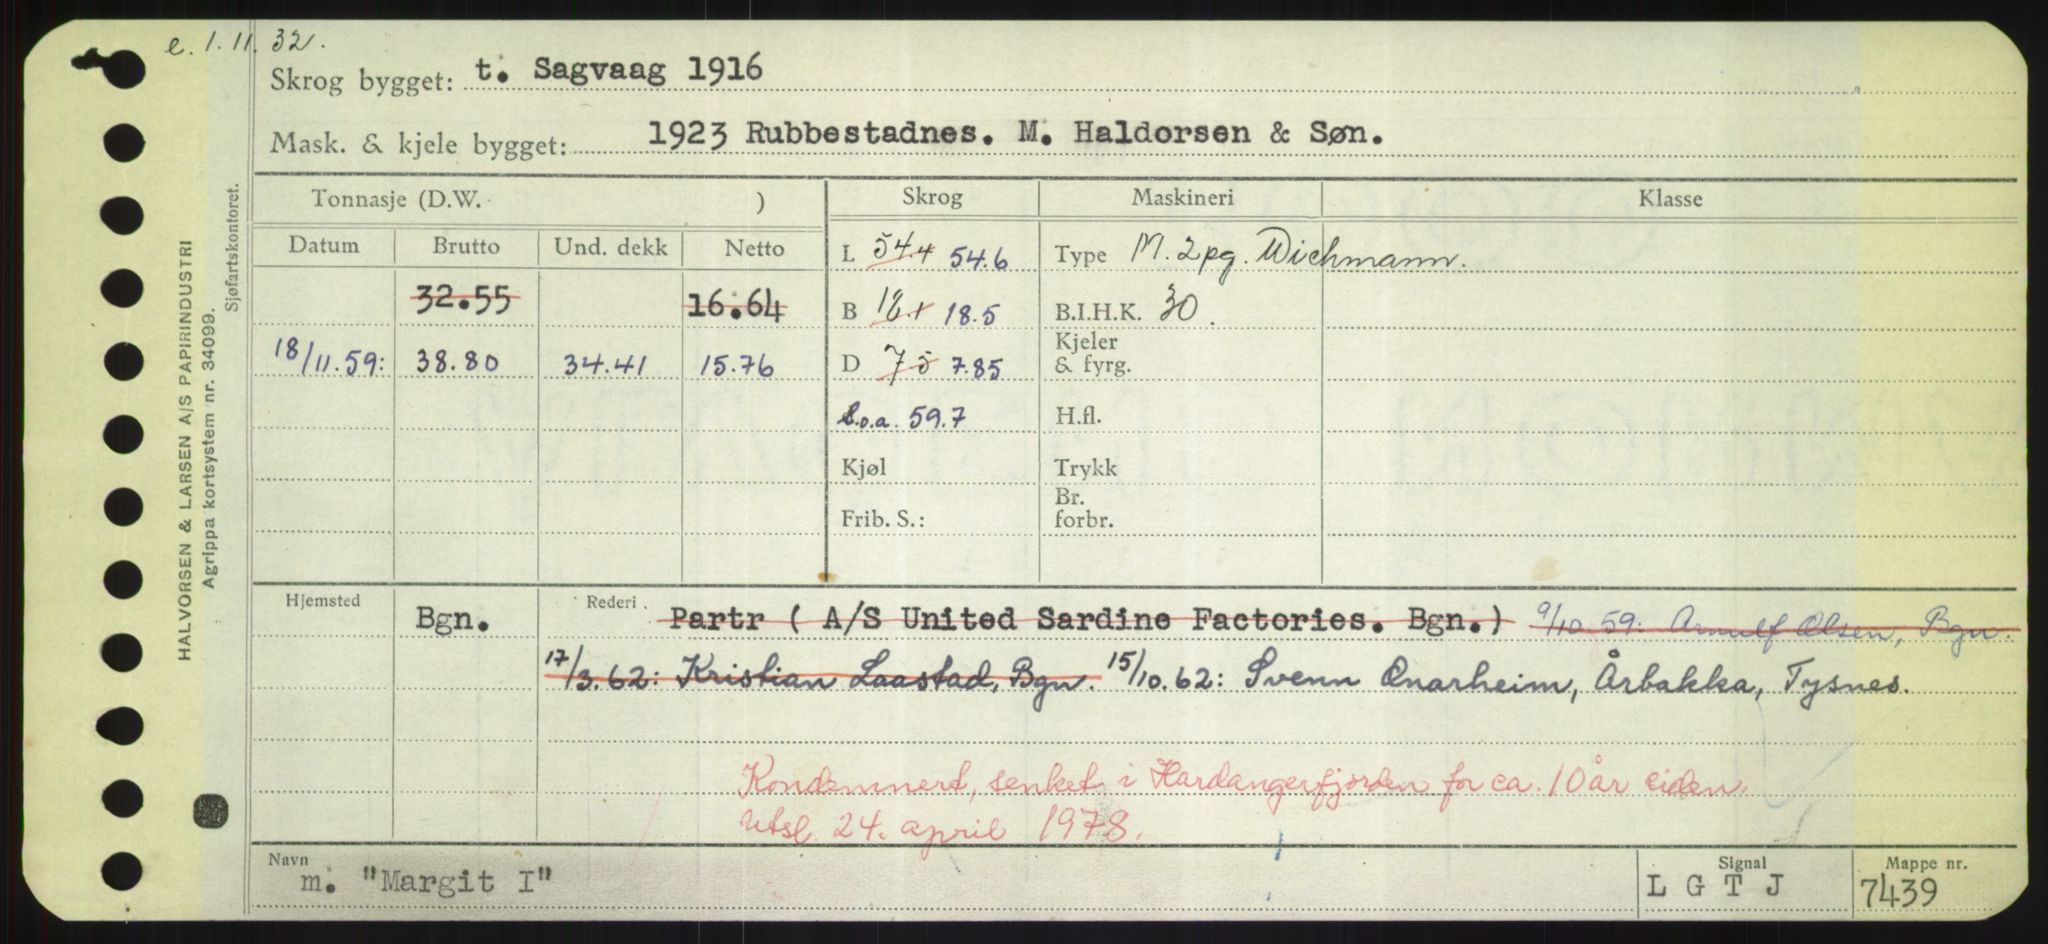 e. 1.11.32.
Skrog bygget: t. Sagvaag 1916
Mask. & kjele bygget: 1923 Rubbestadnes. M. Haldorsen & Søn.
Tonnasje (D.W. ) Skrog Maskineri Klasse
Datum Brutto Und. dekk Netto
L 54.4 54.6 Type M. 2pg. Wichmann.
32.55 16.64 B 18.1 18.5 B.I.H.K. 30.
18/11.59: 38.80 34.41 15.76 D 7.5 7.85 Kjeler & fyrg.
L.o.a. 59.7 H.fl.
Kjøl Trykk
Frib. S.: Br. forbr.
Hjemsted Bgn. Rederi. Partr ( A/S United Sardine Factories. Bgn.) 9/10 59: Arnulf Olsen, Bgn.
17/3.62: Kristian Laastad, Bgn. 15/10.62: Svenn Onarheim, Årbakka, Tysnes.
Kondemnert, senket i Hardangerfjorden for ca. 10 år siden.
Utsl. 24. april 1978.
Navn Signal Mappe nr.
m. "Margit I" L G T J 7439
HALVORSEN & LARSEN A/S PAPIRINDUSTRI
Agrippa kortsystem nr. 34099.
Sjøfartskontoret.